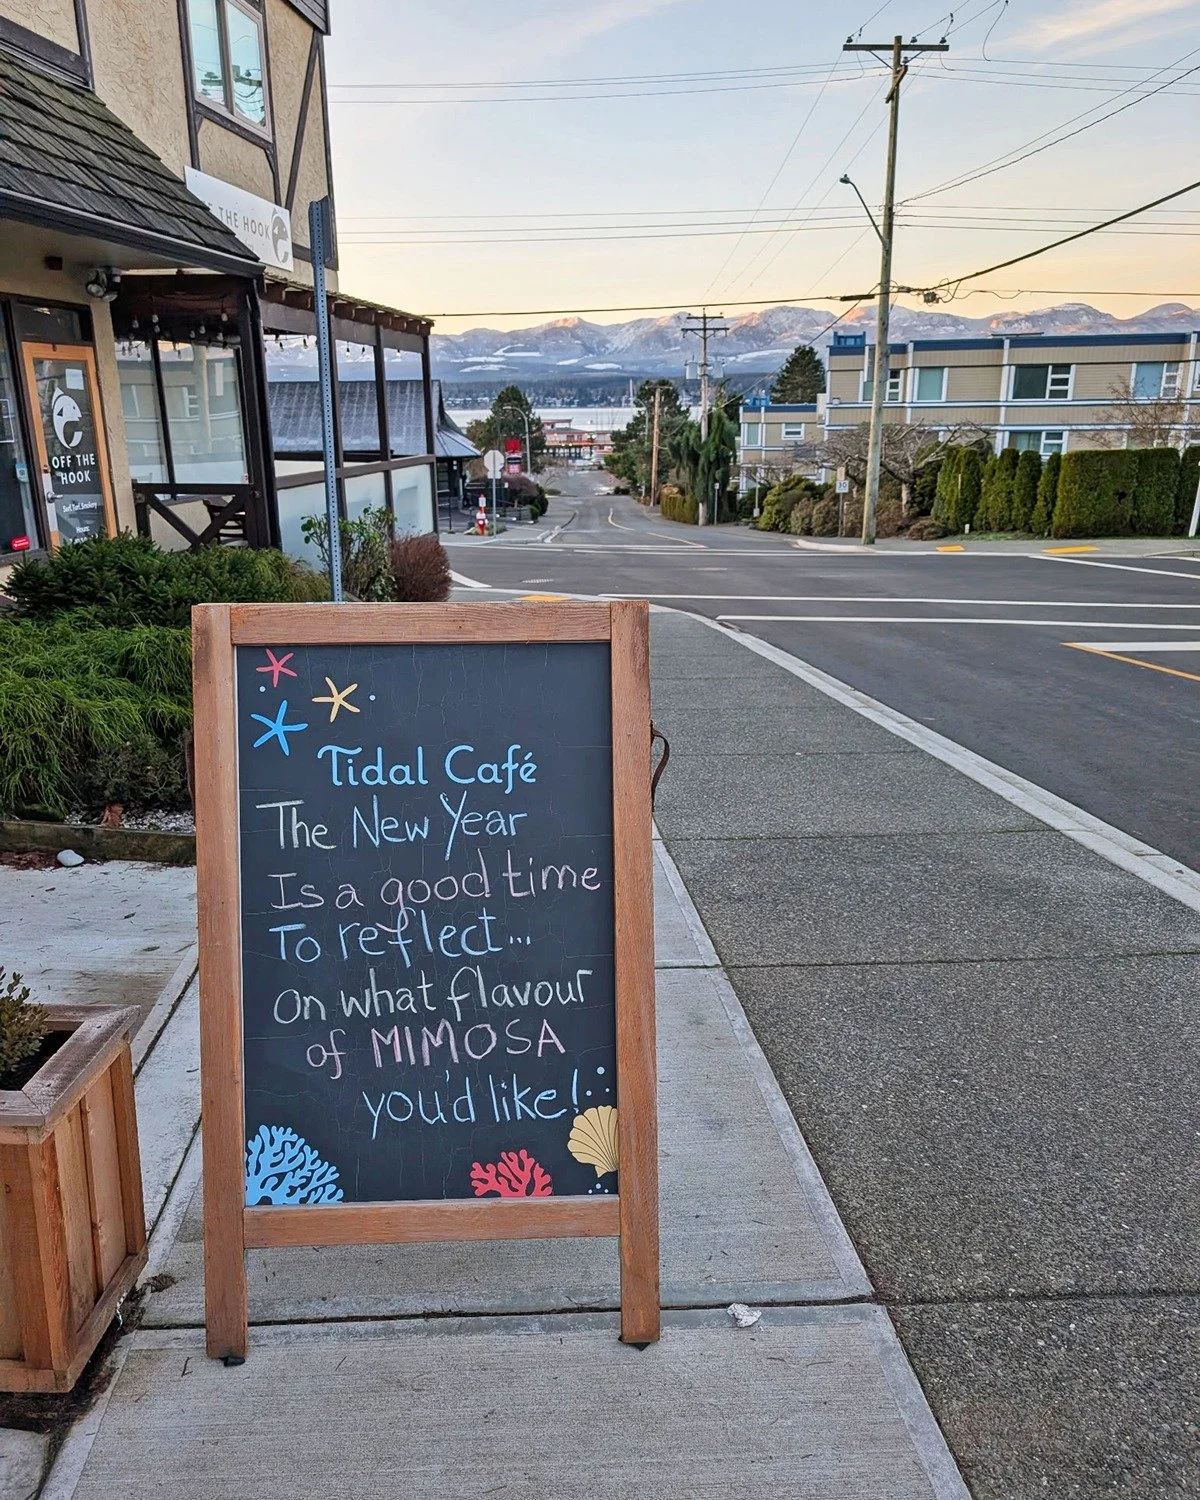 THE HOOK
OFF THE
HOOK
Surf, Turf, Smokery
Hours
30
Tidal Café
The New Year
Is a good time
To reflect...
On what flavour
of MIMOSA
you'd like!